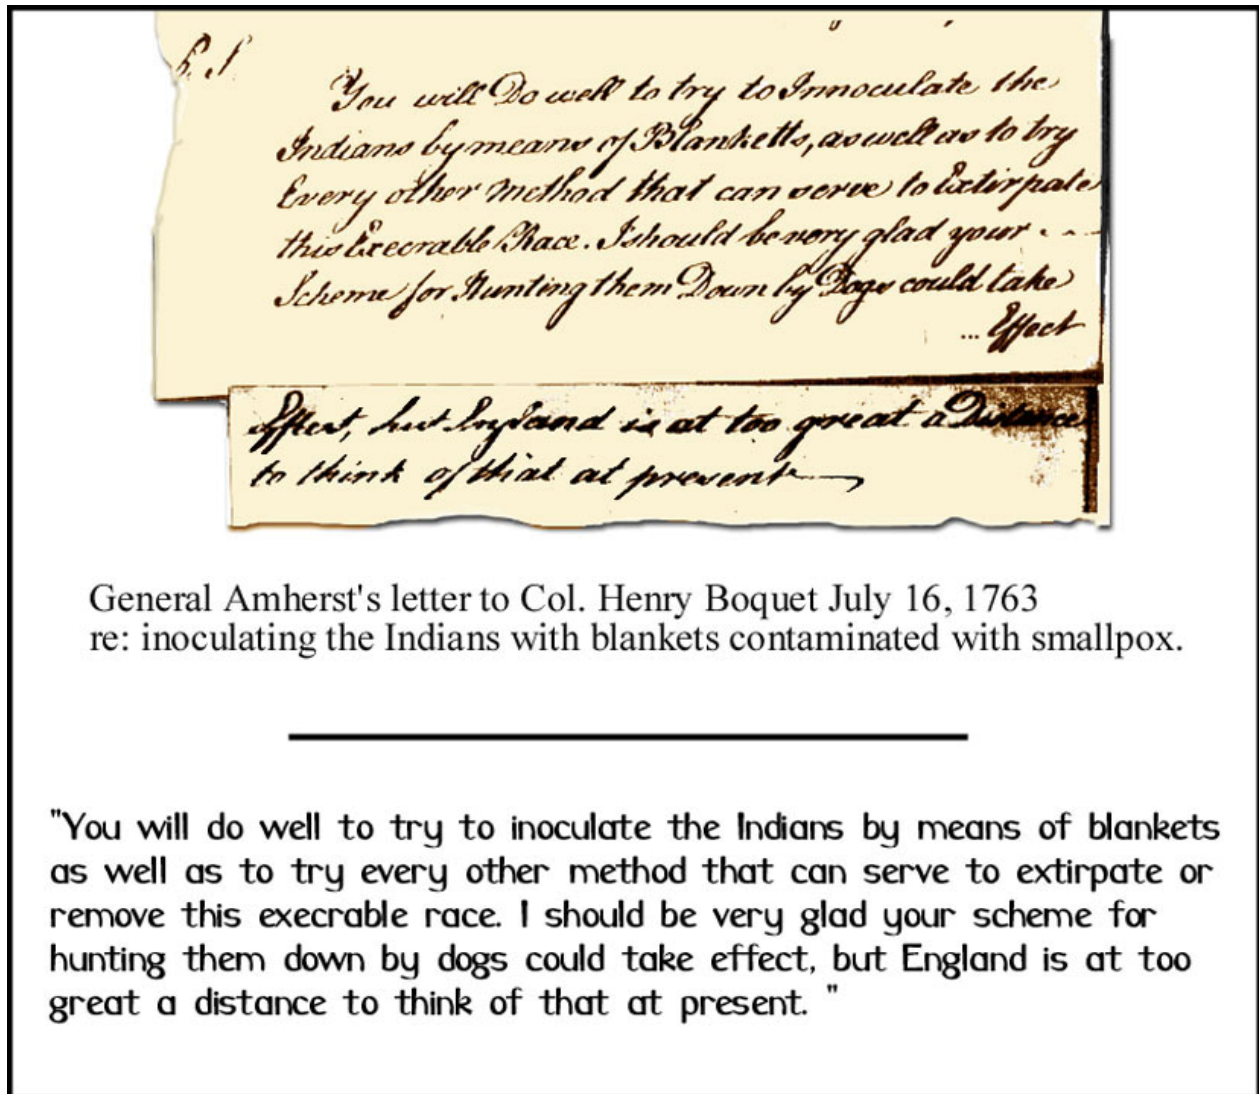 P.S.
You will Do well to try to Innoculate the
Indians by means of Blanketts, as well as to try
Every other Method that can serve to Extirpate
this Execrable Race. I should be very glad your
Scheme for Hunting them Down by Dogs could take
... Effect
Effect, but England is at too great a Distance
to think of that at present
General Amherst's letter to Col. Henry Boquet July 16, 1763
re: inoculating the Indians with blankets contaminated with smallpox.
"You will do well to try to inoculate the Indians by means of blankets
as well as to try every other method that can serve to extirpate or
remove this execrable race. I should be very glad your scheme for
hunting them down by dogs could take effect, but England is at too
great a distance to think of that at present. "